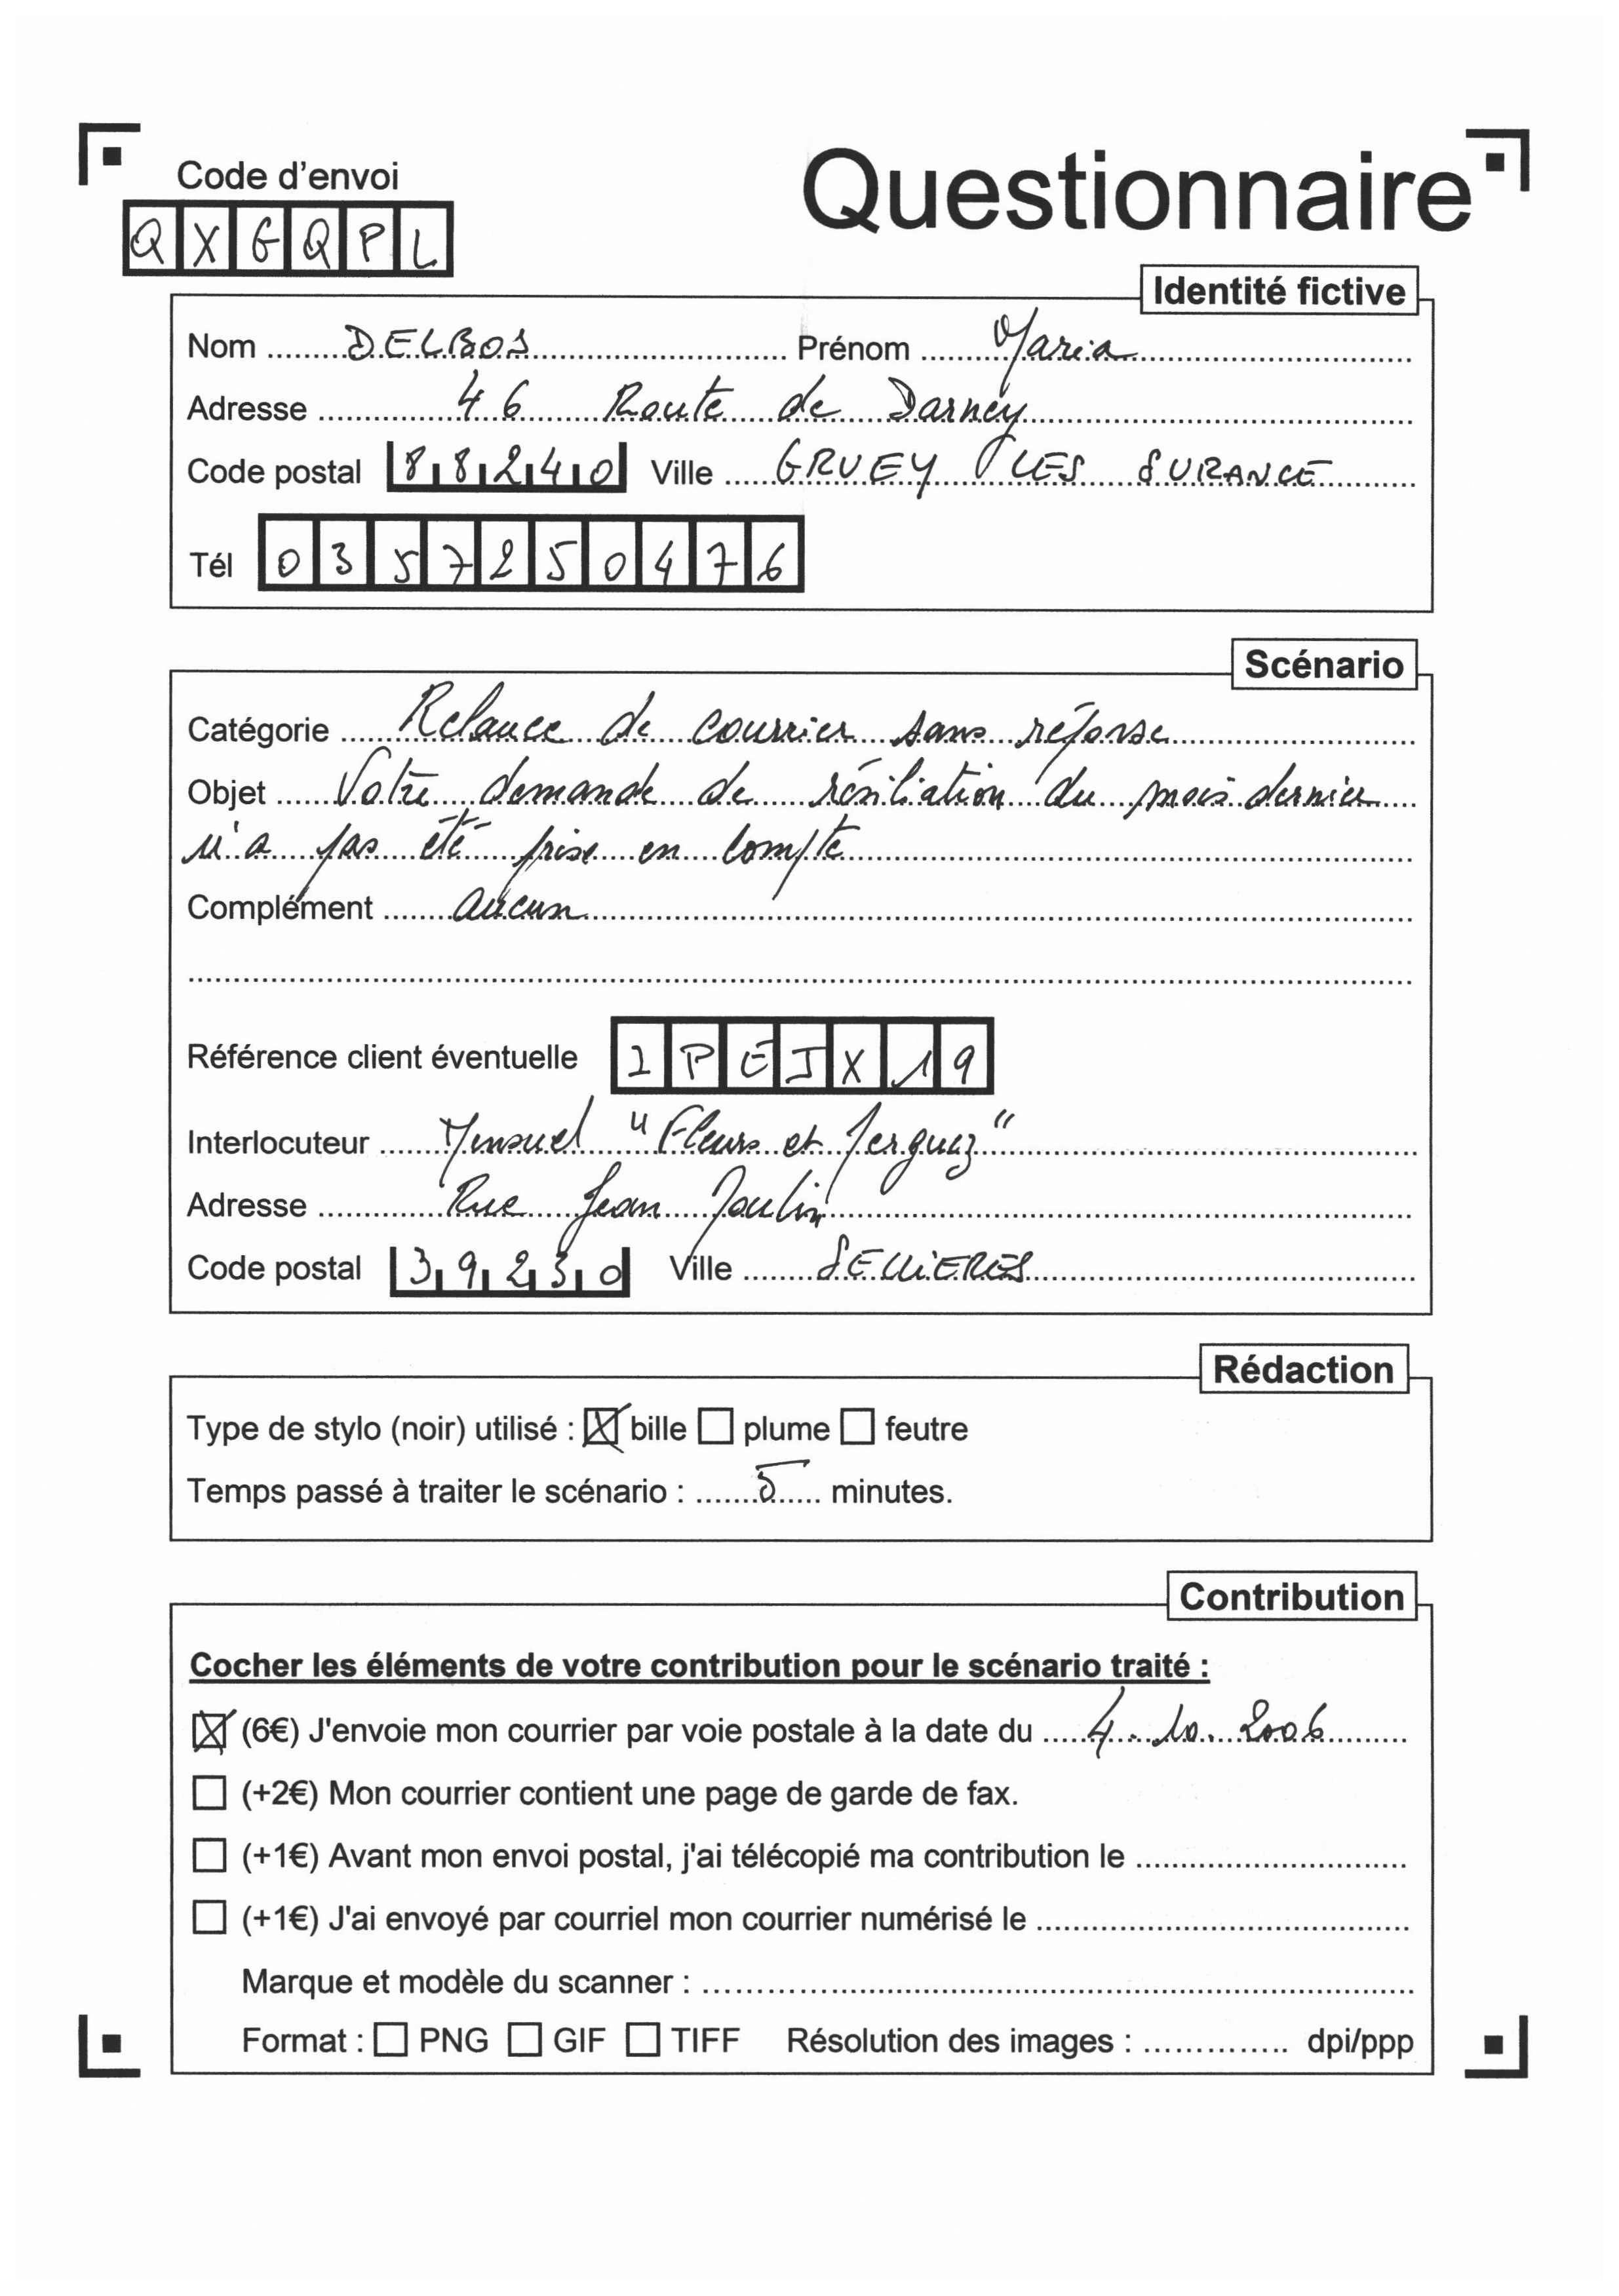 Code d'envoi
Questionnaire
QXGQPL
Identité fictive
Nom DELBOS Prénom Maria
Adresse 46 Route de Darney
Code postal 88240 Ville GRUEY LES SURANCE
Tél 0357250476
Scénario
Catégorie Relance de courrier sans réponse
Objet Votre demande de résiliation du mois dernier
n'a pas été prise en compte
Complément aucun
Référence client éventuelle IPEJX19
Interlocuteur Mensuel "Fleurs et
Adresse Rue Jean Moulin
Code postal 39230 Ville SELLIERES
Rédaction
Type de stylo (noir) utilisé : bille plume feutre
Temps passé à traiter le scénario : 5 minutes.
Contribution
Cocher les éléments de votre contribution pour le scénario traité :
(6€) J'envoie mon courrier par voie postale à la date du 4.10.2006
(+2€) Mon courrier contient une page de garde de fax.
(+1€) Avant mon envoi postal, j'ai télécopié ma contribution le
(+1€) J'ai envoyé par courriel mon courrier numérisé le
Marque et modèle du scanner :
Format : PNG GIF TIFF Résolution des images : dpi/ppp